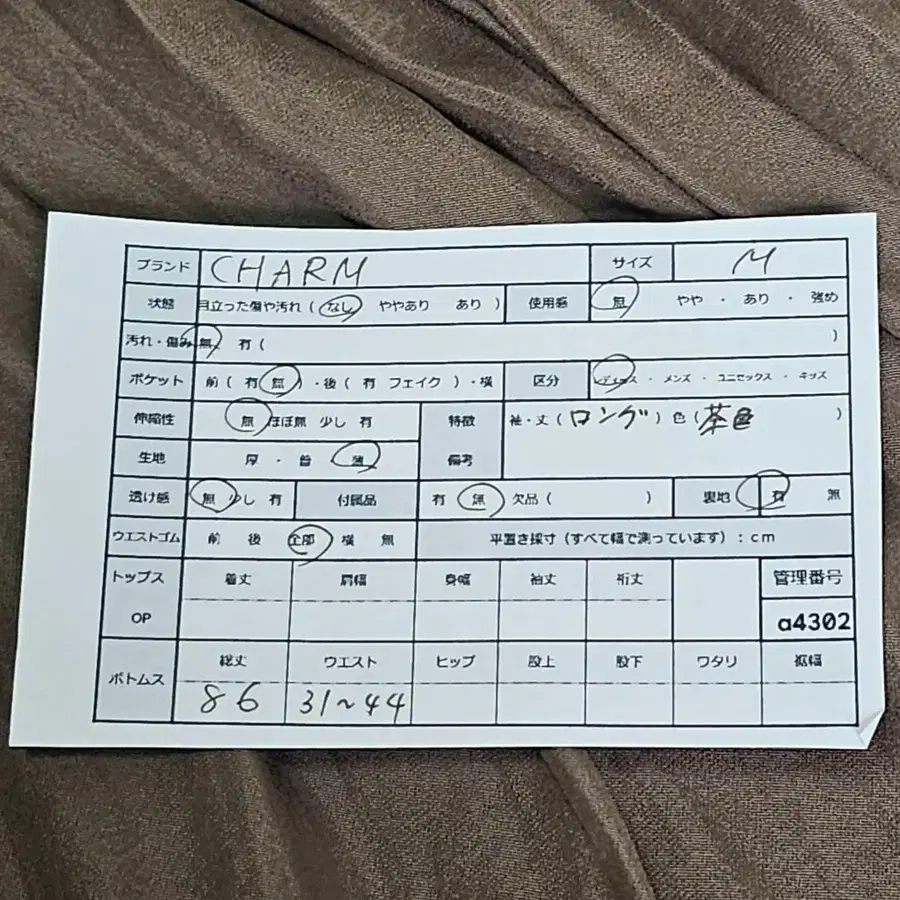 ブランド CHARM サイズ M
状態 目立った傷や汚れ ( なし ややあり あり ) 使用感 無 やや ・ あり ・ 強め
汚れ・傷み 無 有 ( )
ポケット 前 ( 有 無 ) ・後 ( 有 フェイク ) ・横 区分 レディース ・ メンズ ・ ユニセックス ・ キッズ
伸縮性 無 ほぼ無 少し 有 特徴 備考 袖・丈 ( ロング ) 色 ( 茶色 )
生地 厚 ・ 普 薄
透け感 無 少し 有 付属品 有 無 欠品 ( ) 裏地 有 無
ウエストゴム 前 後 全部 横 無 平置き採寸 (すべて幅で測っています) : cm
トップス OP 着丈 肩幅 身幅 袖丈 裄丈 管理番号
a4302
ボトムス 総丈 ウエスト ヒップ 股上 股下 ワタリ 裾幅
86 31~44